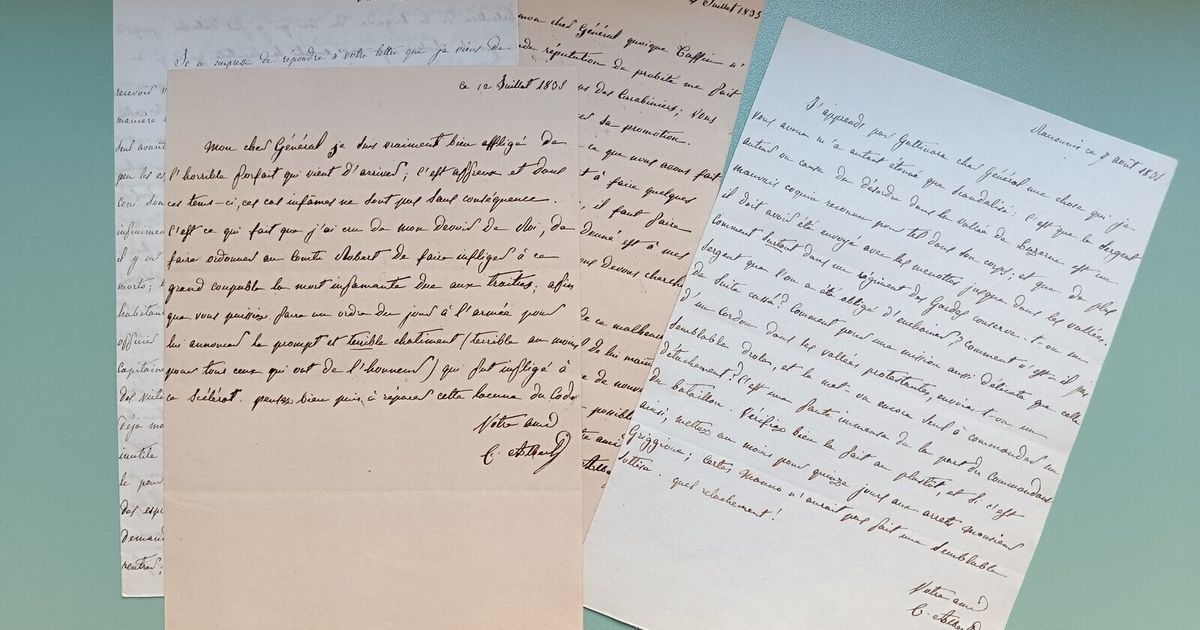 Je m'empresse de répondre à votre lettre que je viens de
recevoir
manière
peu les es
infiniment
il y eut
morts;
habitants
officiers
Capitaine
des
déjà
inutile
le pour
des
demand
rentrer;
Juillet 1835
mon cher Général quoique Taffin n'
réputation de probité me fait
des Carabiniers; vous
sa promotion.
ce que nous avons fait
à faire quelques
il faut faire
donné est à mes
devons cherche
de ce malheu
de lui main
de nouv
possible
ami
ce 12 Juillet 1835
Mon cher Général je suis vraiment bien affligé de
l'horrible forfait qui vient d'arriver; c'est affreux et dans
ces tems-ci, ces cas infames ne sont pas sans conséquence.
C'est ce qui fait que j'ai cru de mon devoir de Roi, de
faire ordonner au Comte Robert de faire infliger à ce
grand coupable la mort infamante due aux traitres; afin
que vous puissiez faire un ordre du jour à l'armée pour
lui annoncer le prompt et terrible chatiment (terrible au moins
pour tous ceux qui ont de l'honneur) qui fut infligé à
ce scélérat. pensez bien puis à réparer cette lacune du Code
Votre ami
C. Albert
Raconis ce 8 août 1835
J'apprends par Gattinara cher Général une chose qui je
vous avoue m'a autant étonné que scandalisé: c'est que le sergent
auteur ou cause du désordre dans la vallée de Luzerne est un
mauvais coquin reconnu pour tel dans son corps; et que de plus
il doit avoir été envoyé avec les menottes jusque dans les vallées.
Comment surtout dans un régiment des Gardes conserve-t-on un
sergent que l'on a été obligé d'enchainer? Comment n'est-il pas
de suite cassé? Comment pour une mission aussi délicate que celle
d'un cordon dans les vallées protestantes, envoie-t-on un
semblable drole, et le met-on encore seul à commander un
détachement? C'est une faute immense de la part du commandant
du bataillon. Vérifiez bien le fait au plustot, et si c'est
ainsi, mettez au moins pour quinze jours aux arrets monsieur
Griggione; certes Manno n'aurait pas fait une semblable
sottise. quel relachement!
Votre ami
C. Albert